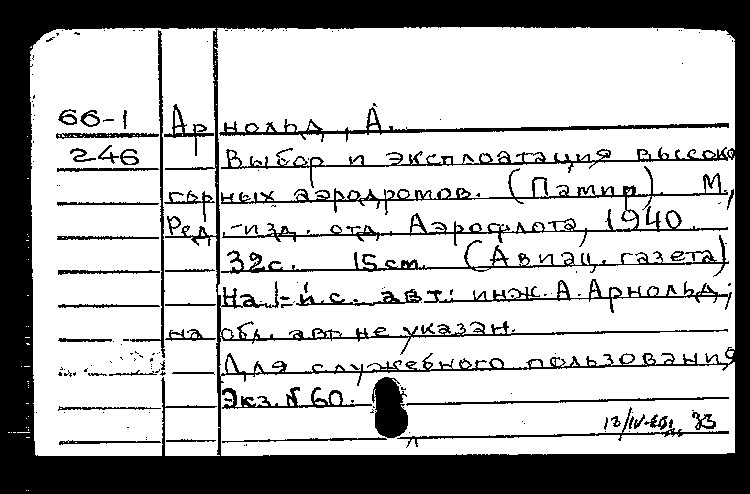 66-1 Арнольд, А.
246 Выбор и эксплоатация высоко
горных аэродромов. (Памир). М.,
Ред.-изд. отд. Аэрофлота, 1940.
32с. 15cm. (Авиац. газета)
На 1-й с. авт: инж. А. Арнольд;
на обл. авт не указан.
Для служебного пользования
Экз. № 60.